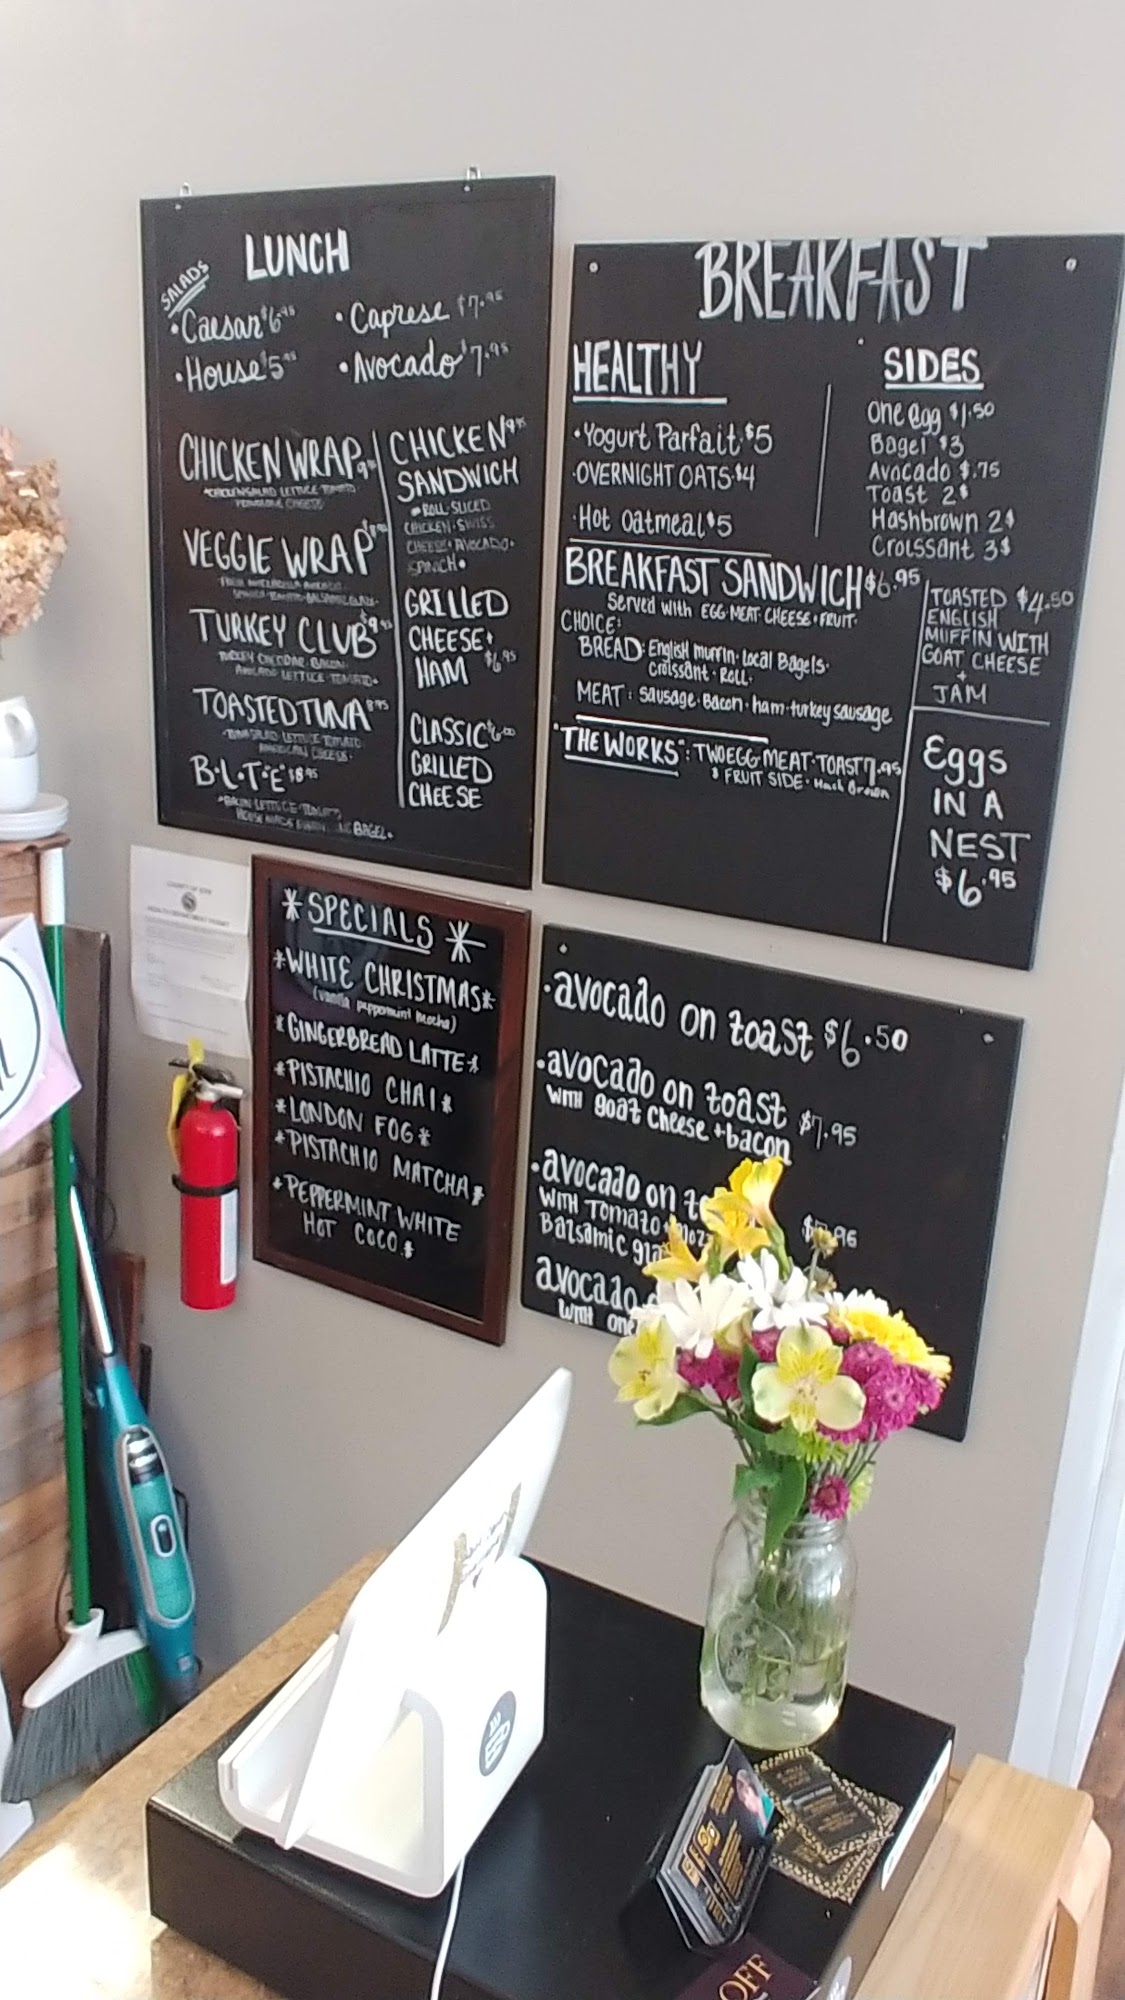 LUNCH
SALADS
• Caesar $6.95
• Caprese $7.95
• House $5.95
• Avocado $7.95
CHICKEN WRAP 9.95
LETTUCE TOMATO
CHEESE
VEGGIE WRAP
TURKEY CLUB
TURKEY CHEDDAR BACON
AVOCADO LETTUCE TOMATO
TOASTED TUNA 8.95
TUNA SALAD LETTUCE TOMATO
AMERICAN CHEESE
B•L•T•"E" $8.95
•BACON LETTUCE TOMATO
HOUSE MADE BAGEL•
CHICKEN 9.95
SANDWICH
ROLL SLICED
CHICKEN SWISS
CHEESE AVOCADO
SPINICH•
GRILLED
CHEESE +
HAM $6.95
CLASSIC $6.00
GRILLED
CHEESE
BREAKFAST
HEALTHY
•Yogurt Parfait $5
•OVERNIGHT OATS $4
•Hot Oatmeal $5
SIDES
One egg $1.50
Bagel $3
Avocado $.75
Toast 2$
Hashbrown 2$
Croissant 3$
BREAKFAST SANDWICH $6.95
Served with EGG•MEAT•CHEESE•FRUIT•
CHOICE:
BREAD: English muffin•Local Bagels•
Croissant•Roll•
MEAT: Sausage•Bacon•ham•turkey sausage
"THE WORKS": TWO EGG•MEAT•TOAST 7.95
& FRUIT SIDE•Hash Brown
TOASTED $4.50
ENGLISH
MUFFIN WITH
GOAT CHEESE
+
JAM
Eggs
IN A
NEST
$6.95
*SPECIALS*
*WHITE CHRISTMAS*
(vanilla peppermint mocha)
*GINGERBREAD LATTE*
*PISTACHIO CHAI*
*LONDON FOG*
*PISTACHIO MATCHA*
*PEPPERMINT WHITE
HOT COCO*
•avocado on toast $6.50
•avocado on toast $7.95
WITH goat cheese + bacon
•avocado on
WITH Tomato
Balsamic
avocado
WITH one
COUNTY OF
HEALTH DEPARTMENT PERMIT
OFF